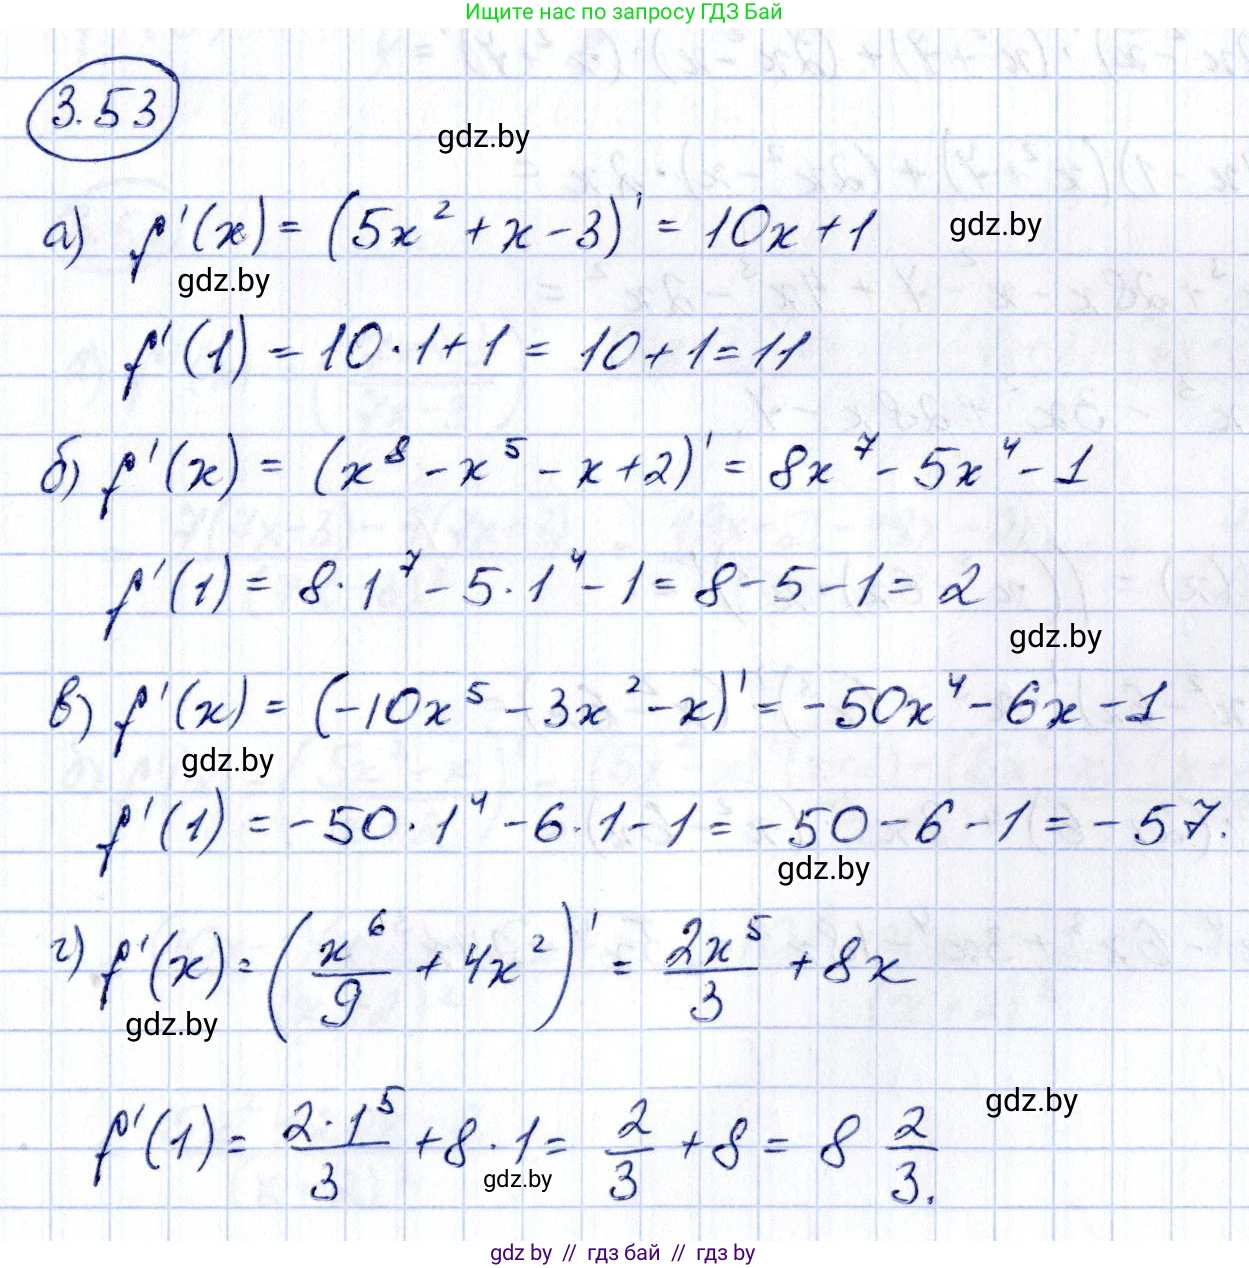 Ищите нас по запросу ГДЗ Бай
3.53
gdz.by
а) f'(x) = (5x² + x - 3)' = 10x + 1
gdz.by
gdz.by
f'(1) = 10·1 + 1 = 10 + 1 = 11
б) f'(x) = (x⁸ - x⁵ - x + 2)' = 8x⁷ - 5x⁴ - 1
f'(1) = 8·1⁷ - 5·1⁴ - 1 = 8 - 5 - 1 = 2
gdz.by
в) f'(x) = (-10x⁵ - 3x² - x)' = -50x⁴ - 6x - 1
gdz.by
f'(1) = -50·1⁴ - 6·1 - 1 = -50 - 6 - 1 = -57.
gdz.by
г) f'(x) = (x⁶/9 + 4x²)' = 2x⁵/3 + 8x
gdz.by
gdz.by
f'(1) = 2·1⁵/3 + 8·1 = 2/3 + 8 = 8 2/3.
gdz.by
gdz by // гдз бай // гдз by